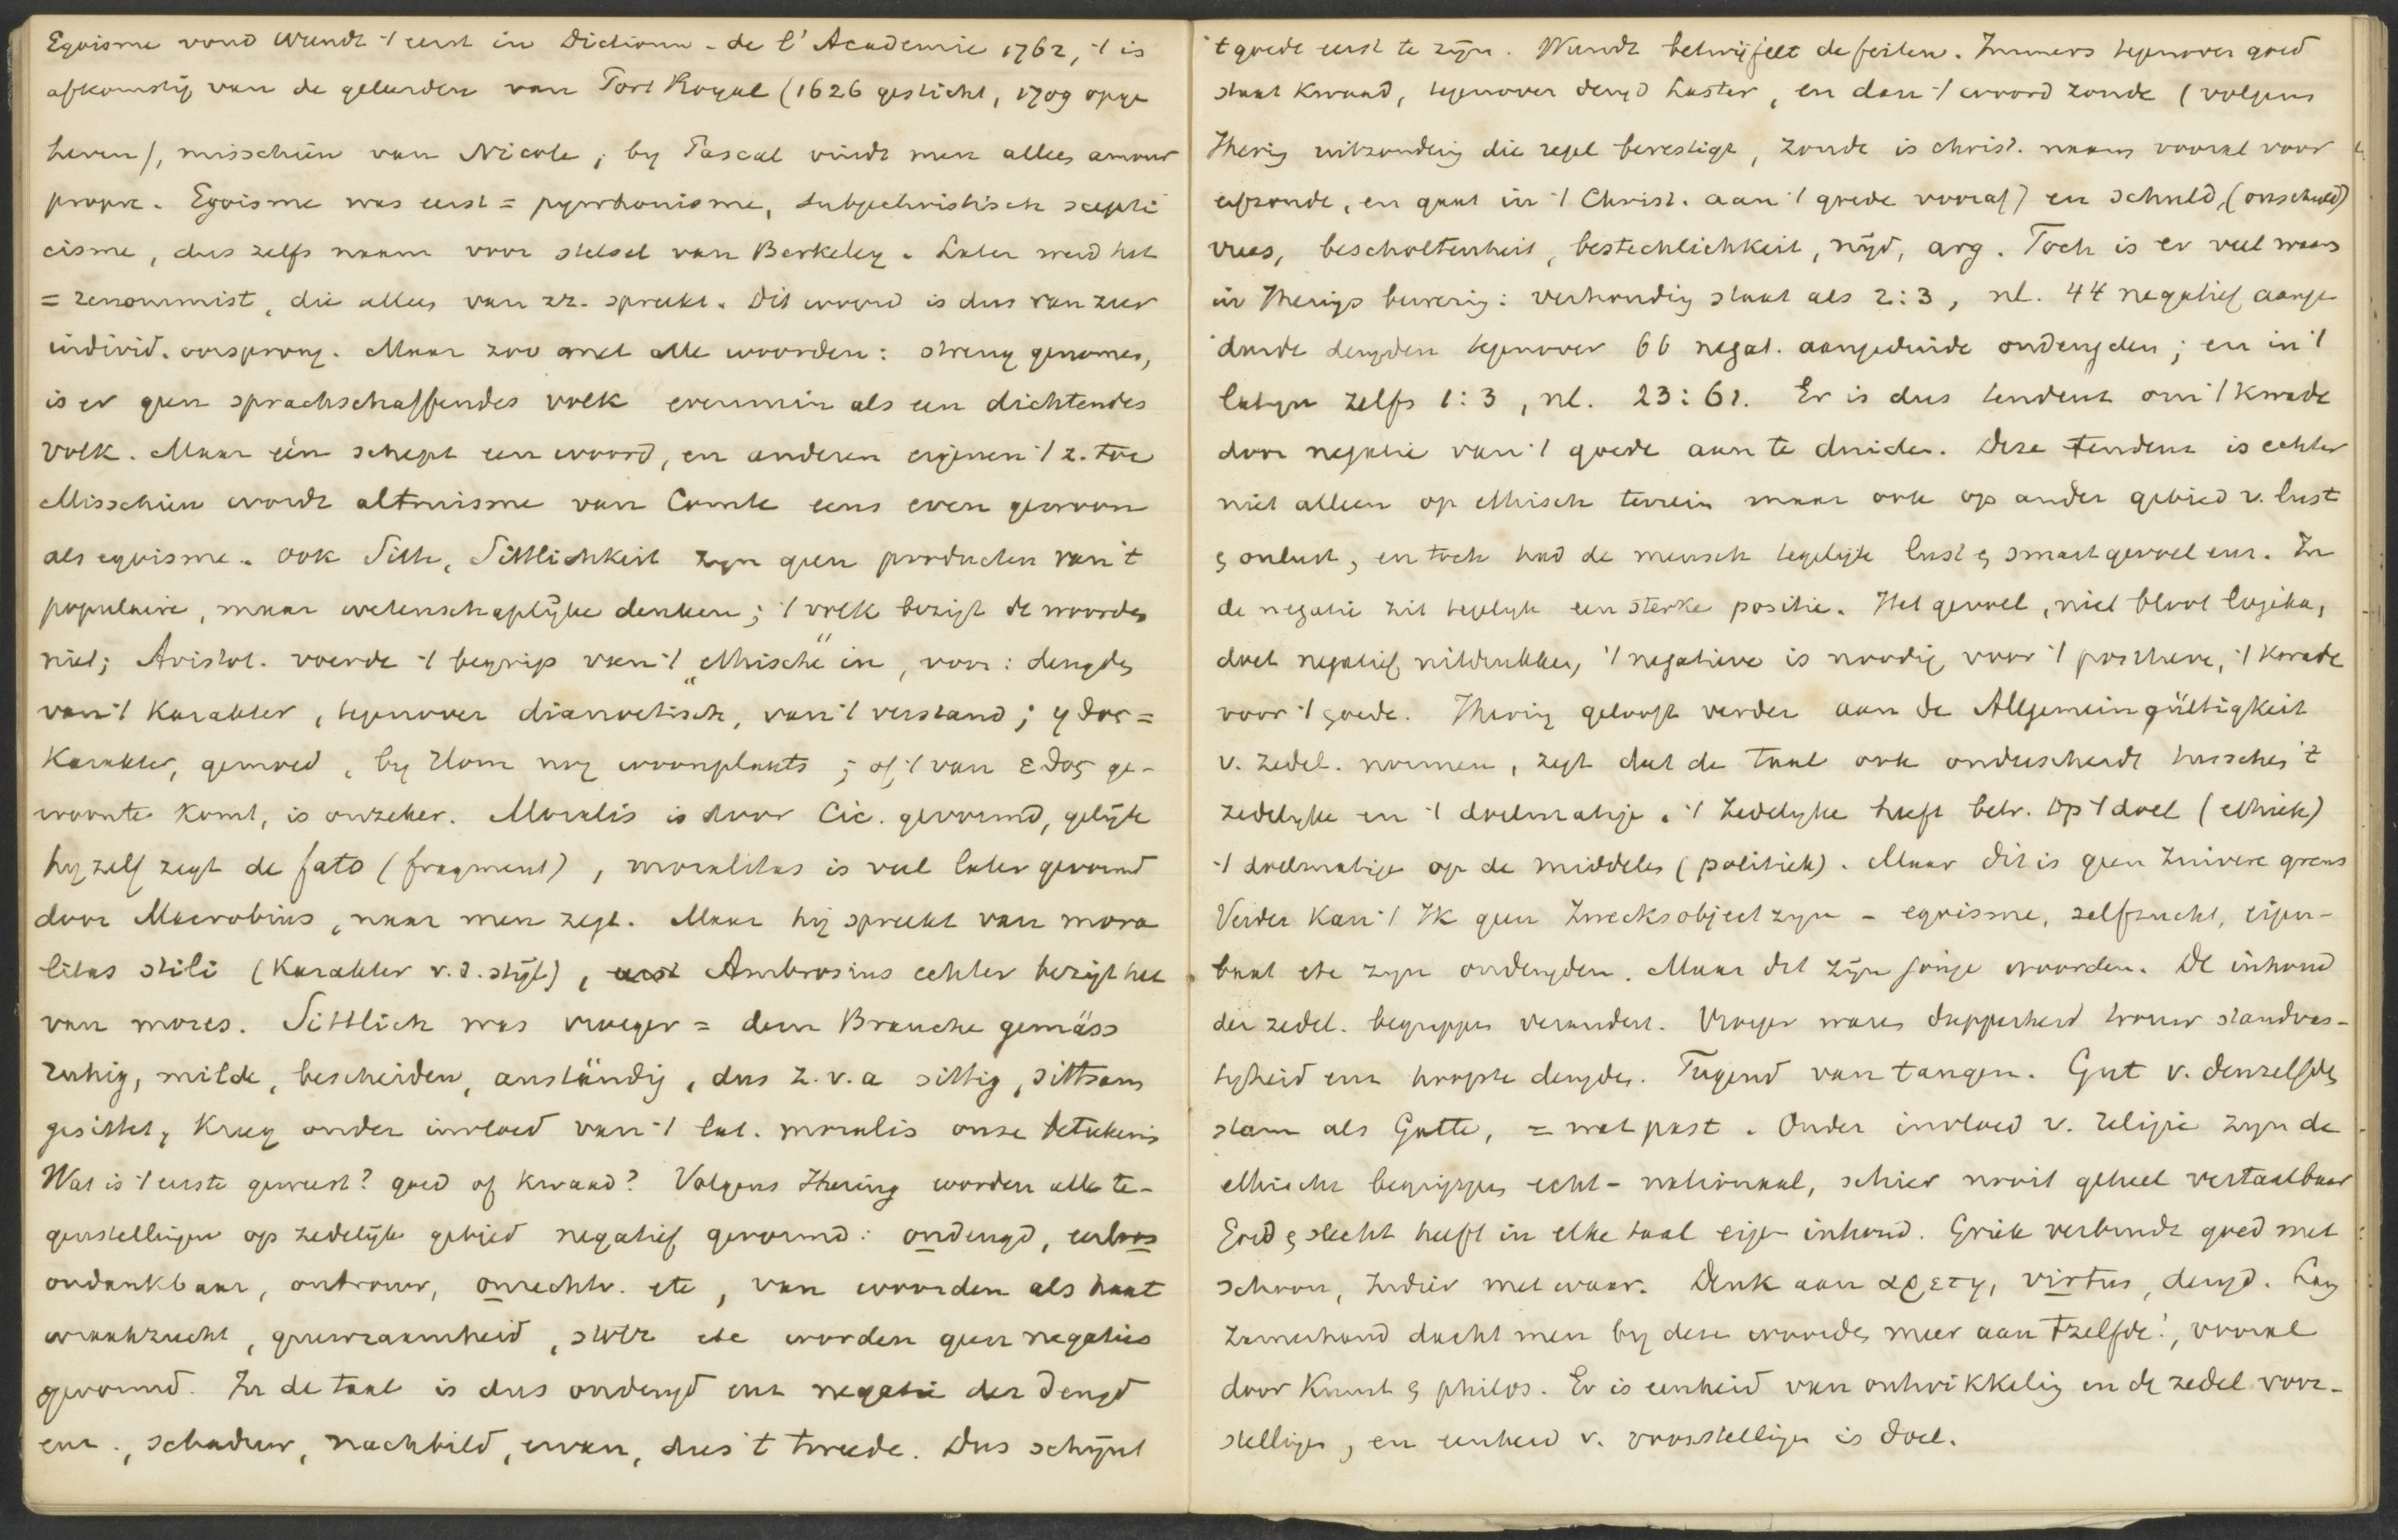 Egoisme vond Wundt 't eerst in Dictionn. de l'Academie 1762, 't is
afkomstig van de geleerden van Port Royal (1626 gesticht, 1709 opge
heven), misschien van Nicole; by Pascal vindt men alleen amour
propre. Egoisme was eerst = pyrrhonisme, subjectivistisch scepti
cisme, dus zelfs naam voor stelsel van Berkeley. Later werd het
= renommist, die alles van zz. spreekt. Dit woord is dus van zeer
individ. oorsprong. Maar zoo met alle woorden: streng genomen,
is er geen sprachschaffendes volk evenmin als een dichtendes
volk. Maar één schept een woord, en anderen eigenen 't z. toe
Misschien wordt altruisme van Comte eens even gewoon
als egoisme. Ook Sitte, Sittlichkeit zyn geen producten van 't
populaire, maar wetenschaplijke denken; 't volk bezigt de woorden
niet; Aristot. voerde 't begrip van 't „ethische" in, voor: deugden
van 't karakter, tegenover dianoetisch, van 't verstand; ηθος =
Karakter, gemoed, by Hom nog woonplaats; of 't van εθος ge-
woonte komt, is onzeker. Moralis is door Cic. gevormd, gelijk
hy zelf zegt de fato (fragment), moralitas is veel later gevormd
door Macrobius, naar men zegt. Maar hij spreekt van mora
litas stili (Karakter v. d. stijl), Ambrosius echter bezigt het
van mores. Sittlich was vroeger = dem Brauche gemäss
ruhig, milde, bescheiden, anständig, dus z. v. a sittig, sittsam
gesittet, kreeg onder invloed van 't lat. moralis onze beteekenis
Wat is 't eerste geweest? goed of kwaad? Volgens Ihering worden alle te-
genstellingen op zedelijk gebied negatief gevormd: ondeugd, eerloos
ondankbaar, ontrouw, onrechtv. etc, van woorden als haat
wraakzucht, gruwzaamheid, stolz etc worden geen negaties
gevormd. In de taal is dus ondeugd enz negatie der deugd
enz., schaduw, nachbild, ervan, dus 't tweede. Dus schijnt
't goede eerst te zijn. Wundt betwijfelt de feiten. Immers tegenover goed
staat kwaad, tegenover deugd laster, en dan 't woord zonde (volgens
Ihering uitzondering die regel bevestigt, zonde is christ. naam vooral voor
erfzonde, en gaat in 't Christ. aan 't goede vooraf) en schuld, (onschuld)
vrees, bescholtenheit, bestechlichkeit, nijd, arg. Toch is er veel waars
in Iherings bewering: verhouding staat als 2:3, nl. 44 negatief aange
duide deugden tegenover 66 negat. aangeduide ondeugden; en in 't
latyn zelfs 1:3, nl. 23:61. Er is dus tendenz om 't kwade
door negatie van 't goede aan te duiden. Deze tendenz is echter
niet alleen op ethisch terrein maar ook op ander gebied v. lust
& onlust, en toch had de mensch tegelijk lust & smartgevoel enz. In
de negatie zit tegelyk een sterke positie. Het gevoel, niet bloot logika,
doet negatief uitdrukken, 't negatieve is noodig voor 't positieve, 't kwade
voor 't goede. Ihering gelooft verder aan de Allgemeingültigkeit
v. zedel. normen, zegt dat de taal ook onderscheidt tusschen 't
zedelyke en 't doelmatige. 't Zedelyke heeft betr. op 't doel (ethiek)
't doelmatige op de middelen (politiek). Maar dit is geen zuivere grens
Verder kan 't Ik geen Zwecksobject zyn - egoisme, zelfzucht, eigen-
baat etc zyn ondeugden. Maar dat zijn jonge woorden. De inhoud
der zedel. begrippen verandert. Vroeger waren dapperheid trouw standvas-
tigheid enz hoogste deugden. Tugend van taugen. Gut v. denzelfden
stam als Gatte, = wat past. Onder invloed v. religie zyn de
ethische begrippen echt-nationaal, schier nooit geheel vertaalbaar
Goed & slecht heeft in elke taal eigen inhoud. Griek verbindt goed met
schoon, Indiër met waar. Denk aan αρετη, virtus, deugd. Lang
zamerhand dacht men by deze woorden meer aan 'tzelfde, vooral
door Kunst & philos. Er is eenheid van ontwikkeling in de zedel voor-
stellingen, en eenheid v. voorstellingen is doel.